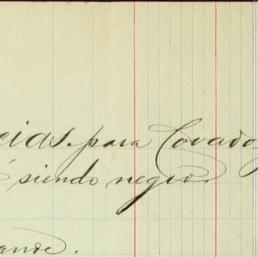 cias. para Covado
siendo negro.
ande.